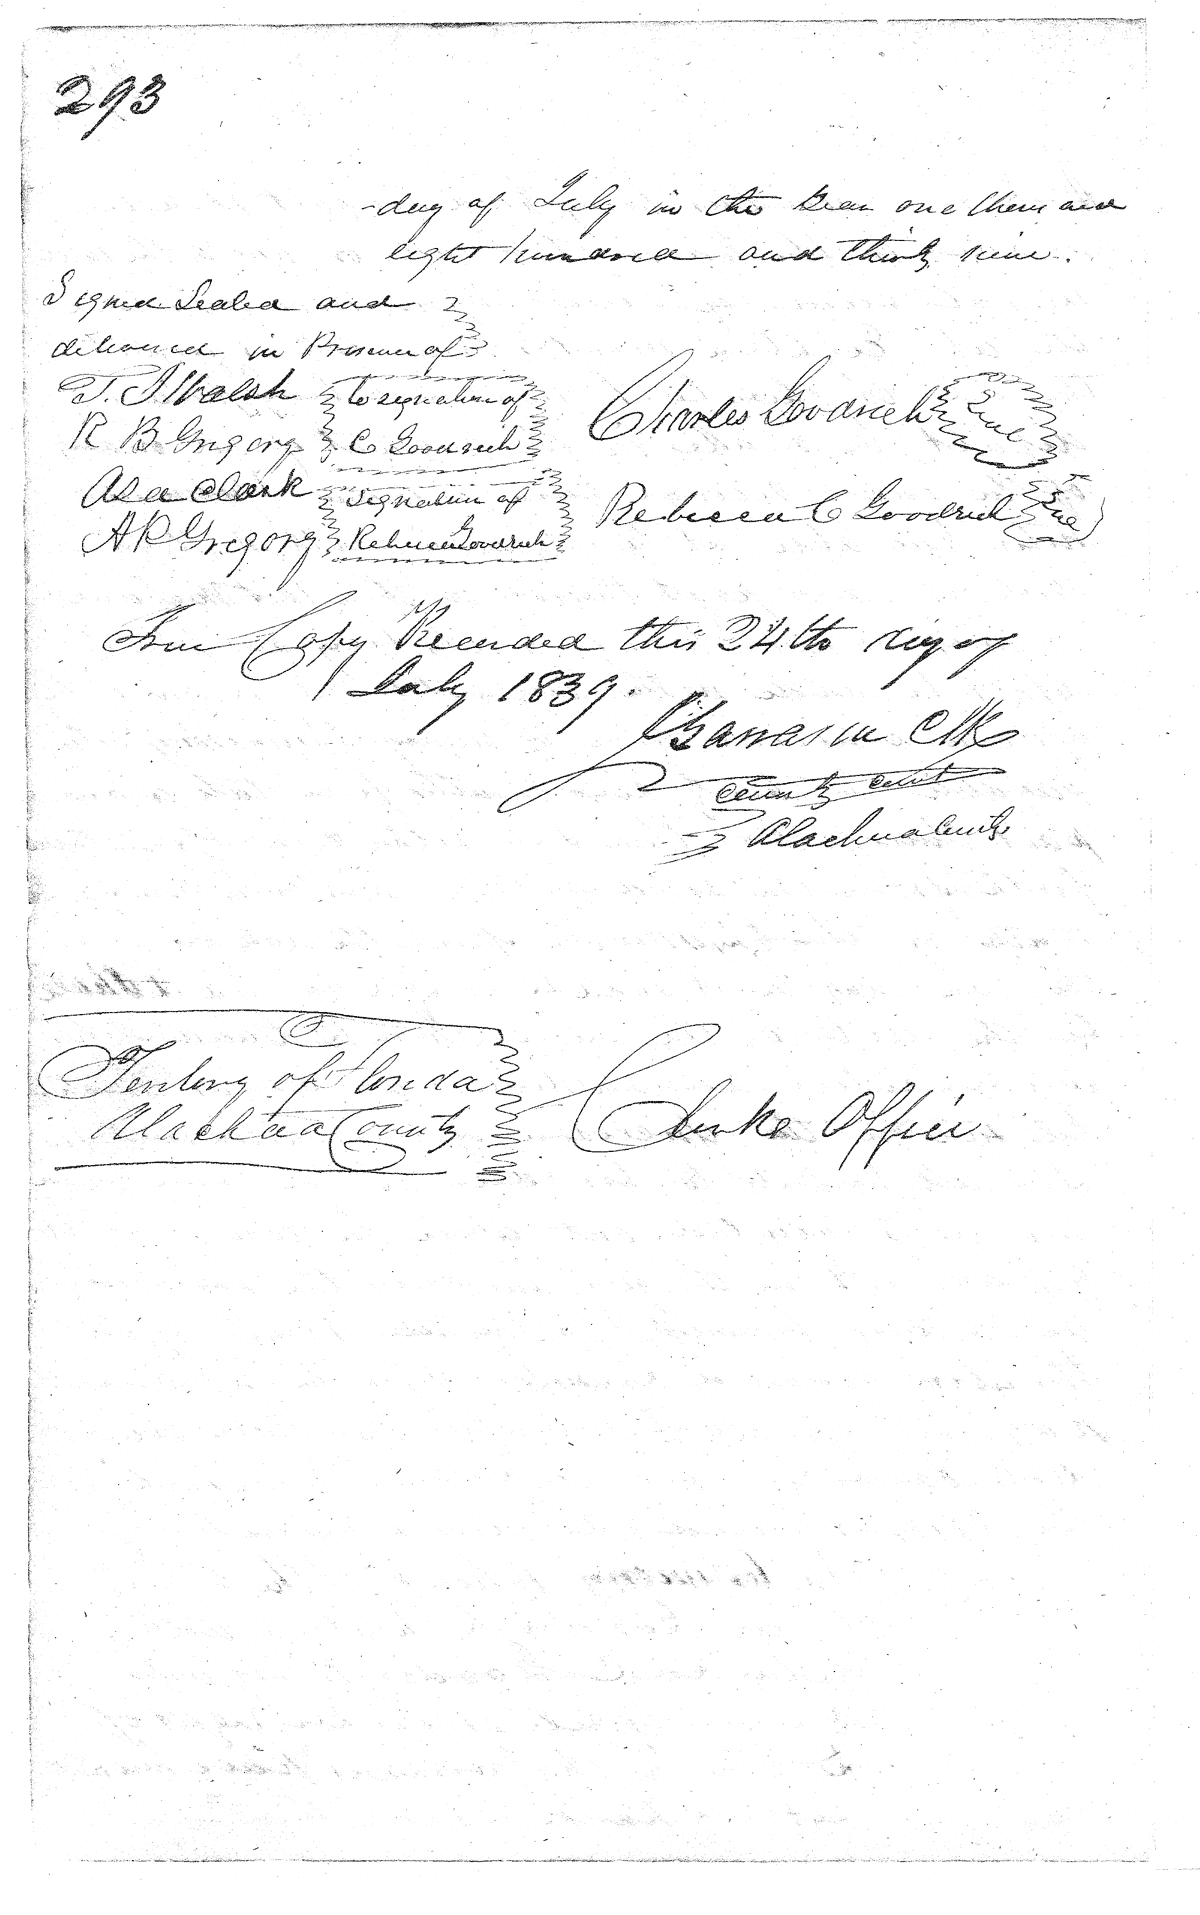 293
day of July in the Year one thousand
eight hundred and thirty nine.
Signed Sealed and
delivered in Presence of
T. J Walsh to signature of
R B Gregory C Goodrich
Charles Goodrich Seal
Asa Clark signature of
A R Gregory Rebecca Goodrich
Rebecca C Goodrich Seal
True Copy Recorded this 24th day of
July 1839.
Clk
County Court
Alachua County
Territory of Florida
Alachua County
Clerks Office